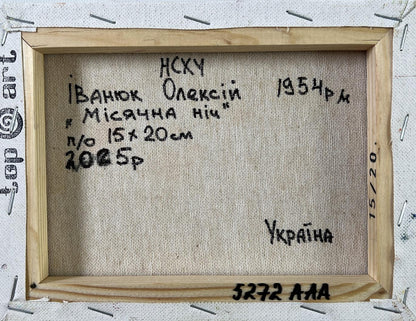 НСХУ
Іванюк Олексій 1954р м
„Місячна ніч"
п/о 15х20см
2025р
Україна
5272 АЛА
15/20.
top art